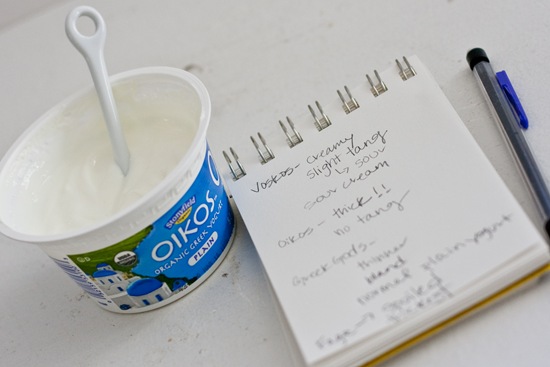 Stonyfield
OIKOS
ORGANIC GREEK YOGURT
PLAIN
Voskos - creamy
slight tang
↳ sour
sour cream
Oikos - thick!!
no tang
Greek Gods -
thinner
bland
normal plain yogurt
Fage →